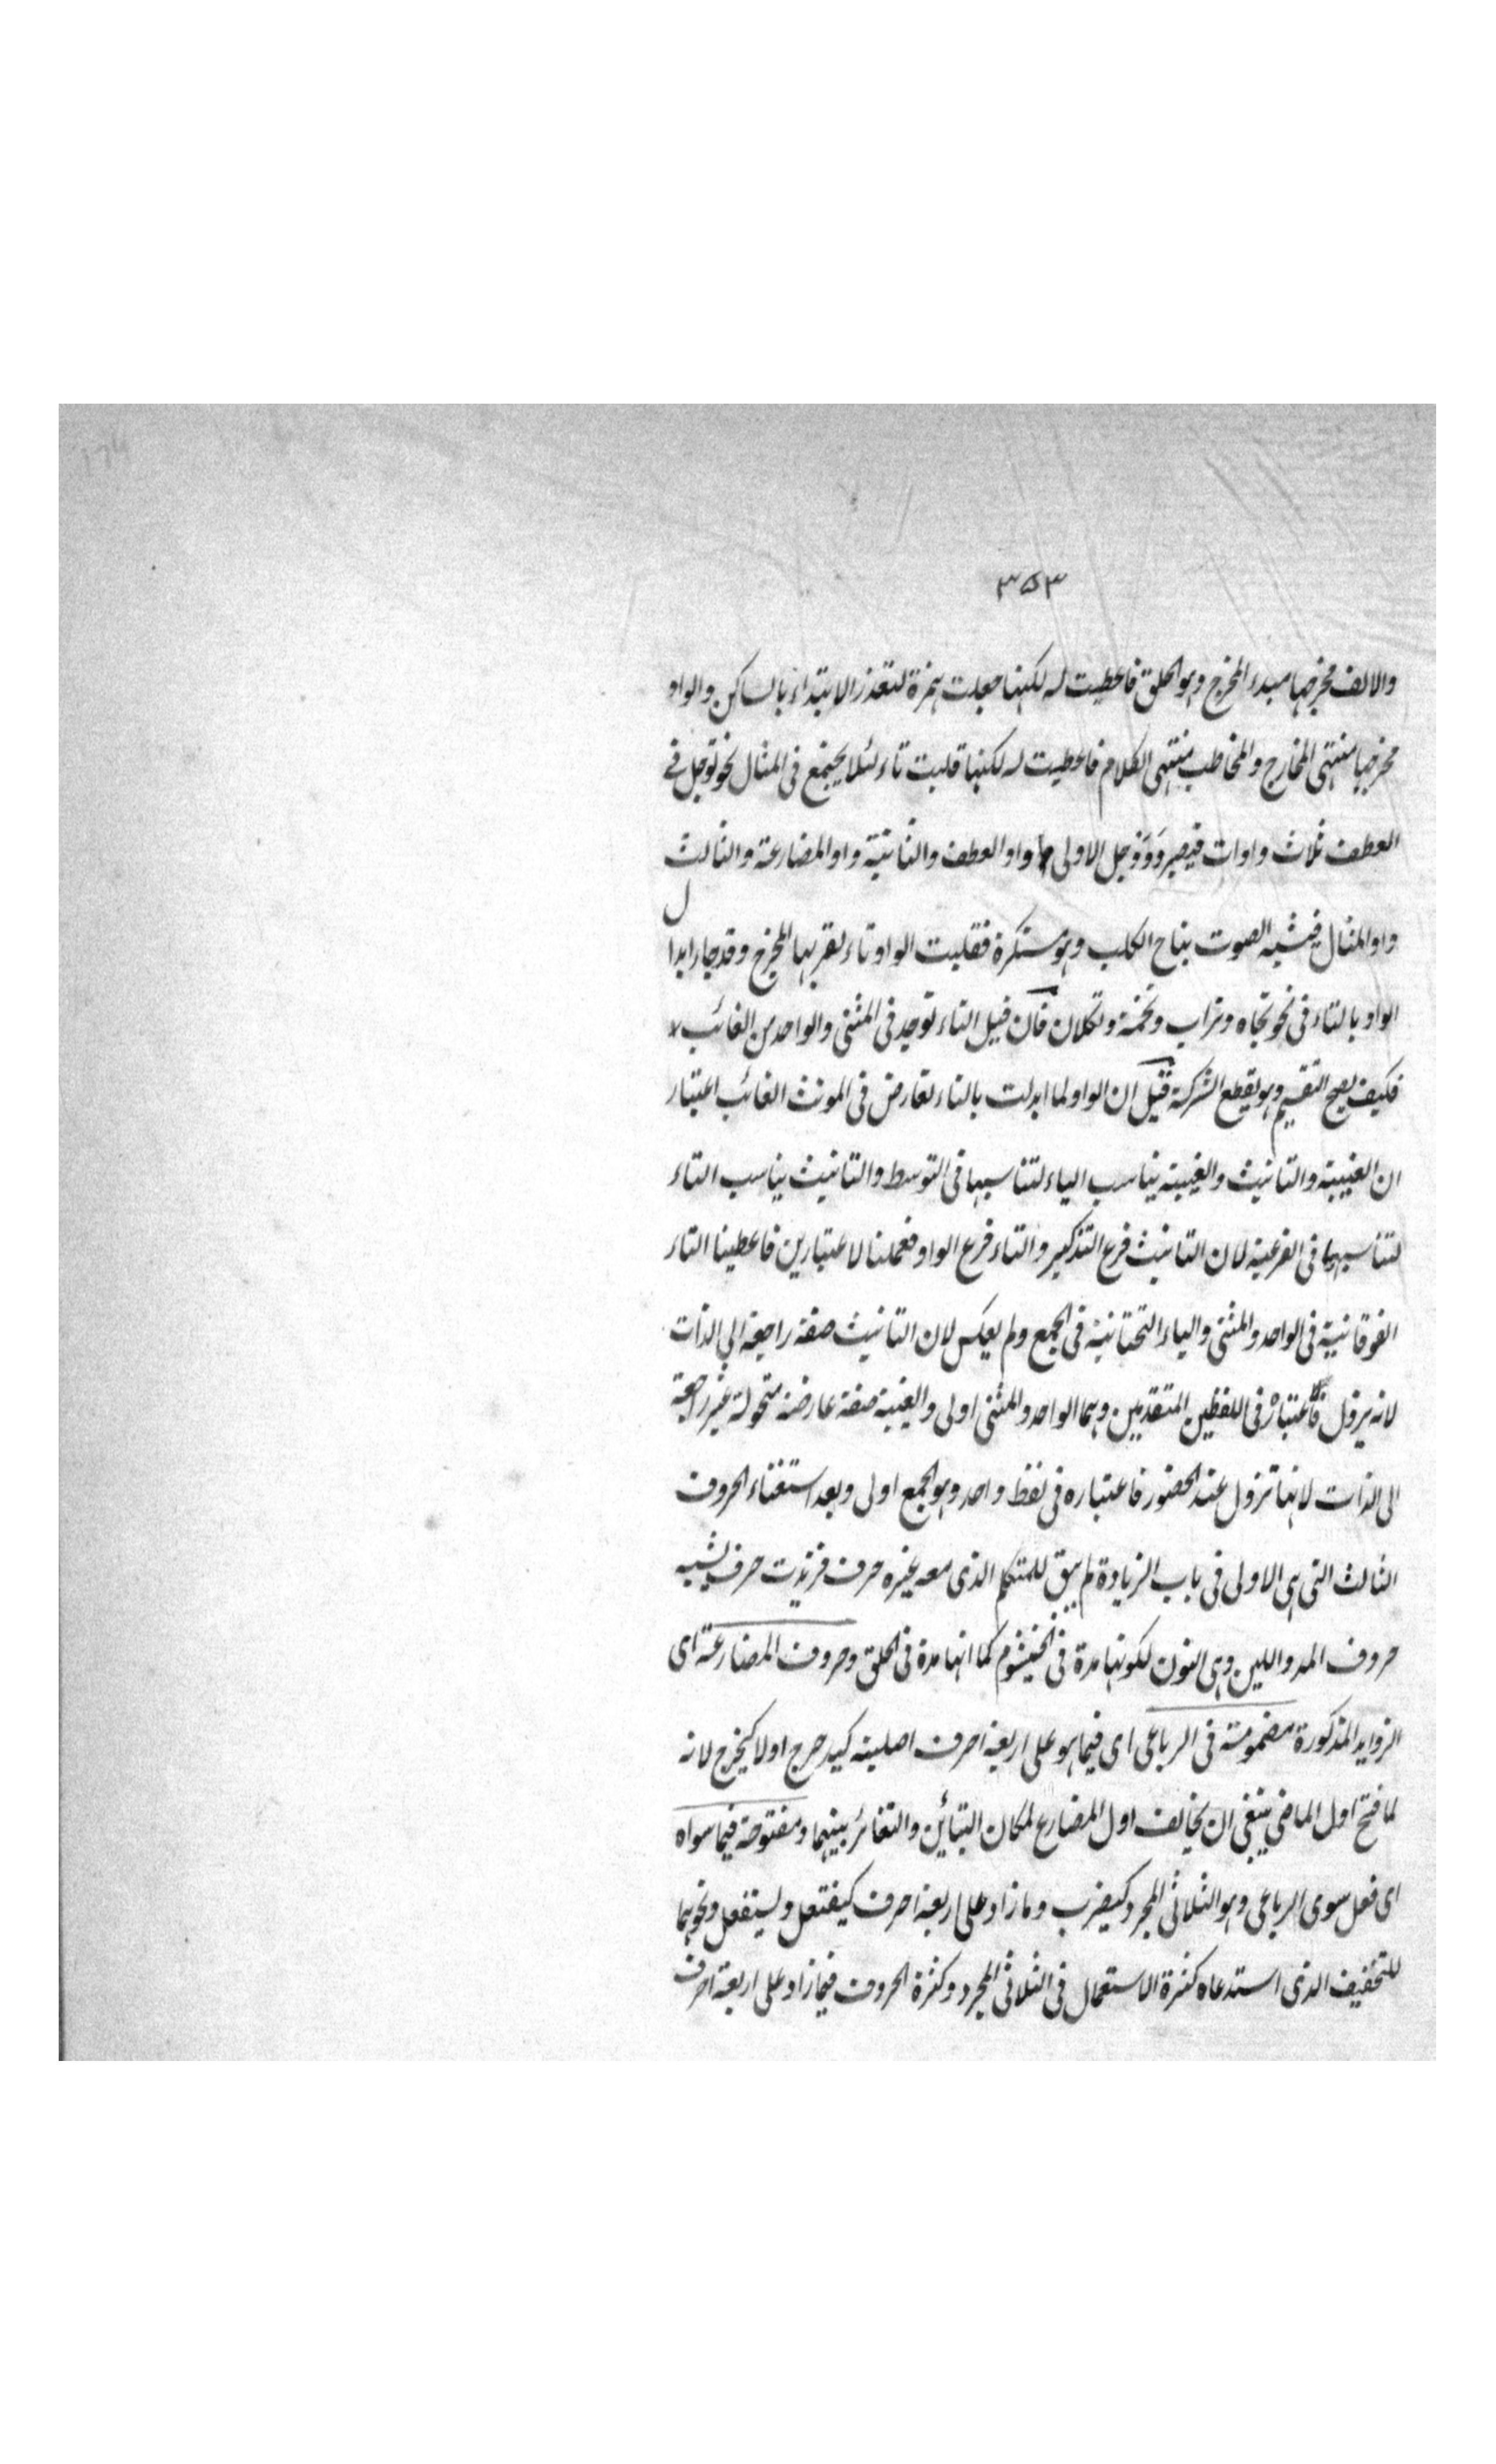 ٣٥٣
والالف مخرجها مبدء المخرج وهو الحلق فاعطيت له لكنها جعلت همزة لتعذر الابتداء بالساكن والواو
مخرجها منتهى المخارج والمخاطب منتهى الكلام فاعطيت له لكنها قلبت تاء لئلا يجتمع فى المثال نحو توجل فے
العطف ثلاث واوات فيصير وَوَوجل الاولى واو العطف والثانية واو المضارعة والثالث
واو المثال فيشبه الصوت بنباح الكلب وهو مستكرة فقلبت الواو تاء لقربها المخرج وقد جاء ابدال
الواو بالتاء فى نحو تجاه وتراب وتخمة وتكلان فان قيل التاء توجد فى المثنى والواحد من الغائب لا
فكيف يصح التقسيم وهو يقطع الشركة قيل ان الواو لما ابدلت بالتاء تعارض فى المونث الغائب اعتبار
ان الغيبة والتانيث والغيبة يناسب الياء لتناسبها فى التوسط والتانيث يناسب التاء
لتناسبهما فى الفرعية لان التانيث فرع التذكير والتاء فرع الواو فعملنا لاعتبارين فاعطينا التاء
الفوقانية فى الواحد والمثنى والياء التحتانية فى الجمع ولم يعكس لان التانيث صفة راجعة الى الذات
لانه يزول فاعتباره فى اللفظين المتقدمين وهما الواحد والمثنى اولى والغيبة صفة عارضة متحولة غير راجعة
الى الذات لانها تزول عند الحضور فاعتباره فى لفظ واحد وهو الجمع اولى وبعد استغناء الحروف
الثالث التى هى الاولى فى باب الزيادة لم يبق للمتكلم الذى معه غيره حرف فزيدت حرف يشبه
حروف المد واللين وهى النون لكونها مدة فى الخيشوم كما انها مدة فى الحلق وحروف المضارعة اى
الزوايد المذكورة مضمومة فى الرباعى اى فيما هو على اربعة احرف اصلية كيدحرج اولا كيخرج لانه
لما فتح اول الماضى ينبغى ان يخالف اول المضارع لمكان التبائن والتغائر بينهما ومفتوحة فيما سواه
اى فعل سوى الرباعى وهو الثلاثى المجرد كيضرب وما زاد على اربعة احرف كيفتعل وليستفعل ونحوهما
للتخفيف الذى استدعاه كثرة الاستعمال فى الثلاثى المجرد وكثرة الحروف فيما زاد على اربعة احرف